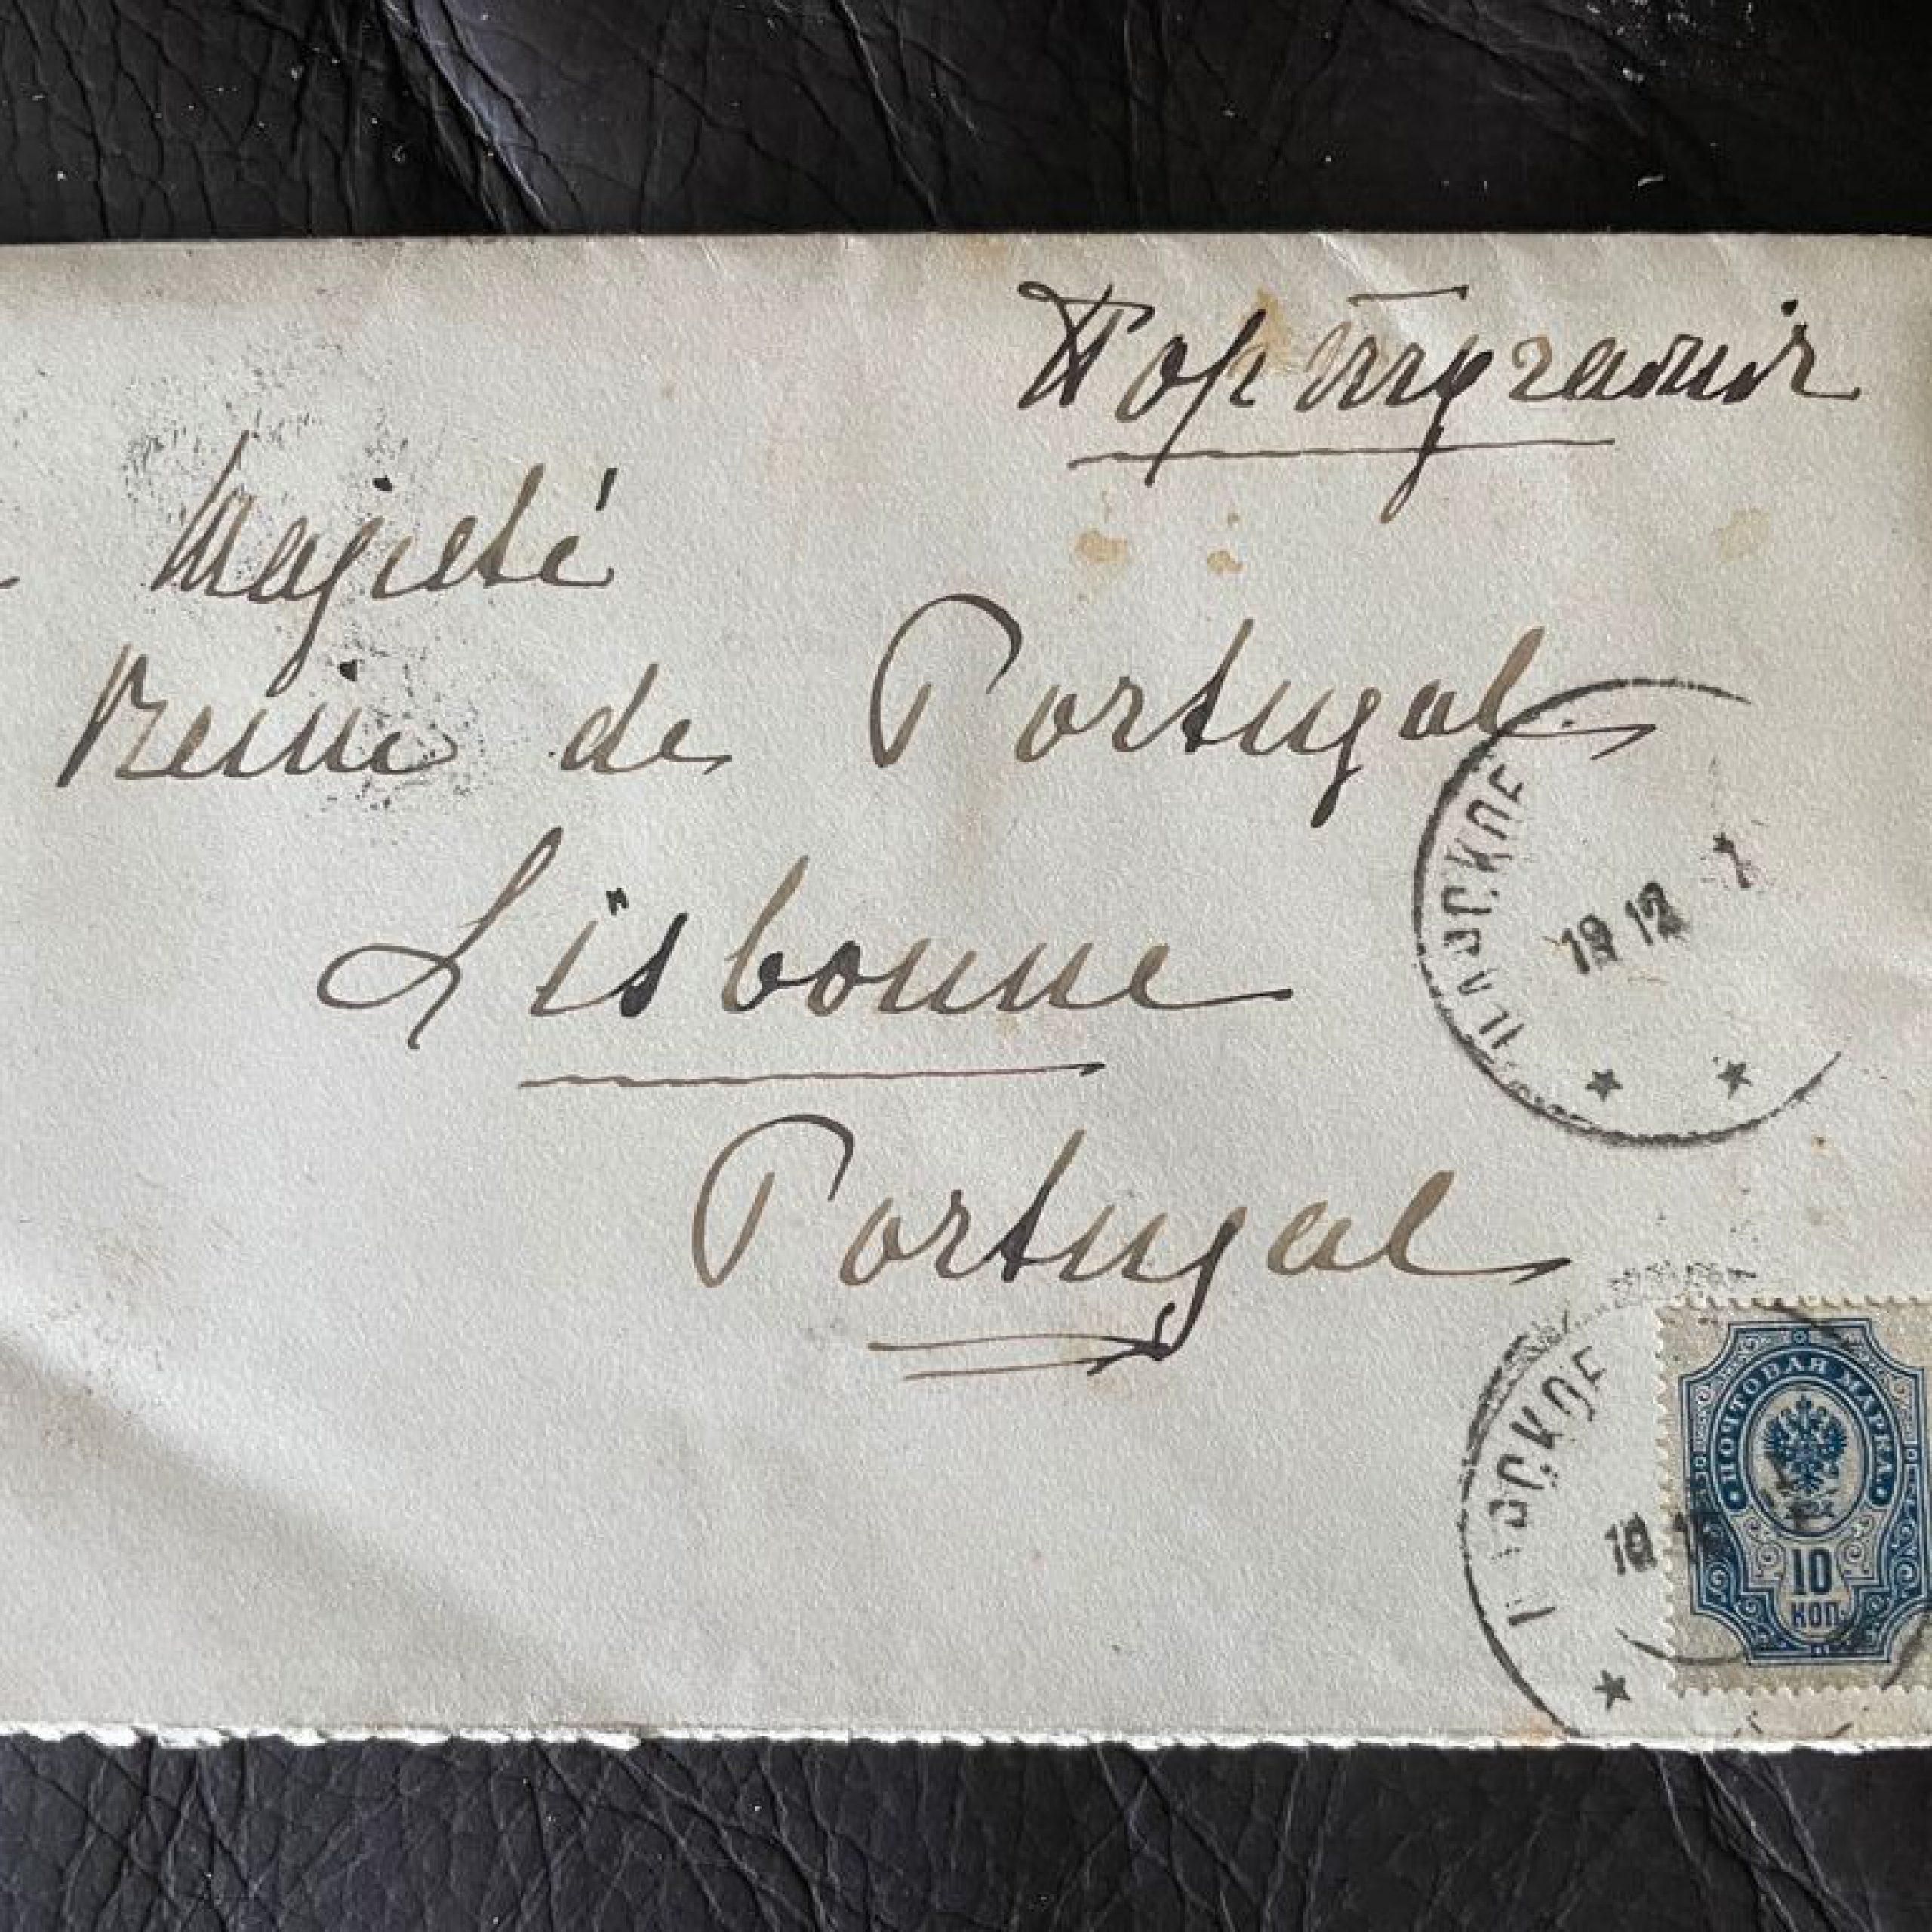 Португалія
Majesté
Reine de Portugal
Lisbonne
Portugal
ЦАРСКОЕ
19 12
РСКОЕ
ПОЧТОВАЯ МАРКА
10
КОП.